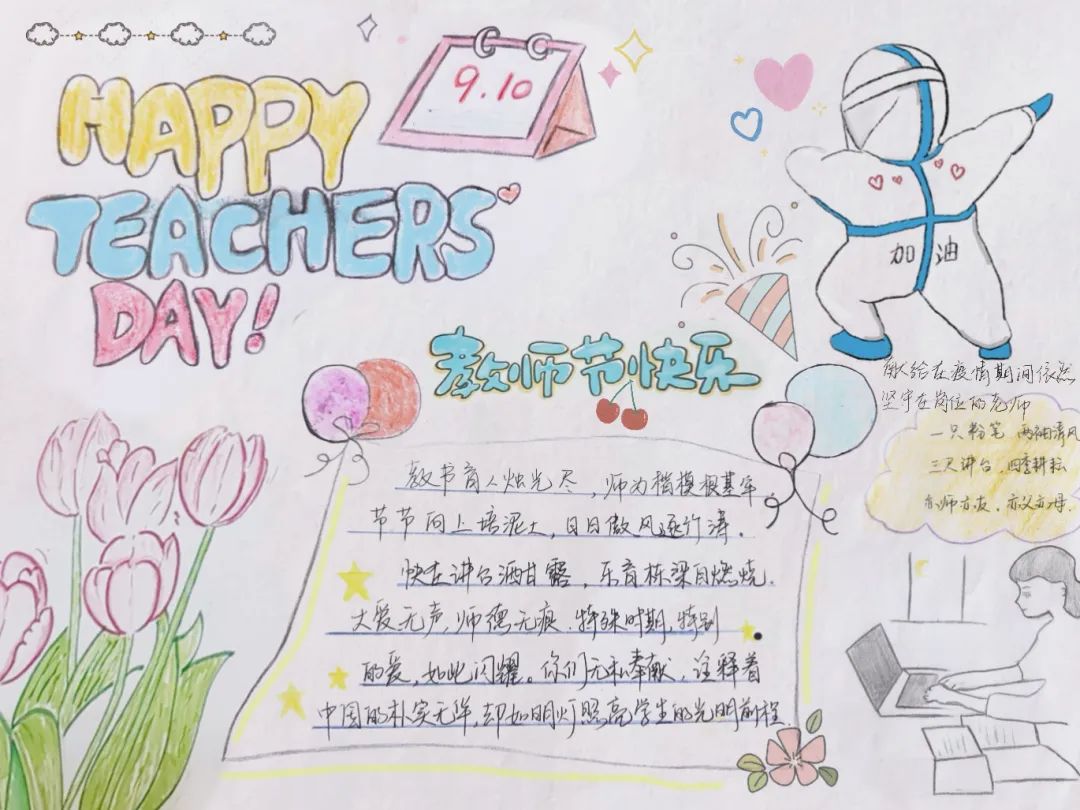 HAPPY
TEACHERS
DAY!
9.10
加油
教师节快乐
献给在疫情期间依然
坚守在岗位的老师
一只粉笔 两袖清风
三尺讲台,四季耕耘
亦师亦友,亦父亦母.
教书育人烛光尽,师为楷模根基牢
节节向上培泥土,日日做风逐竹涛.
快在讲台洒甘露,乐育栋梁自燃烧.
大爱无声,师德无痕.特殊时期,特别
的爱,如此闪耀。你们无私奉献,诠释着
中国的朴实无华,却如明灯照亮学生的光明前程.